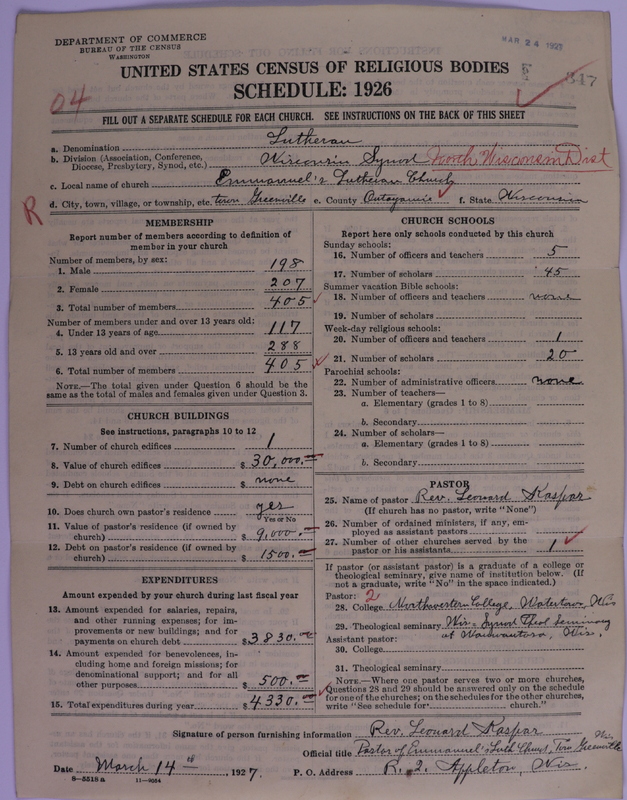 DEPARTMENT OF COMMERCE
BUREAU OF THE CENSUS
WASHINGTON
MAR 24 1927
UNITED STATES CENSUS OF RELIGIOUS BODIES
SCHEDULE: 1926
347
04
FILL OUT A SEPARATE SCHEDULE FOR EACH CHURCH. SEE INSTRUCTIONS ON THE BACK OF THIS SHEET
a. Denomination Lutheran
b. Division (Association, Conference, Diocese, Presbytery, Synod, etc.) Wisconsin Synod North Wisconsin Dist
c. Local name of church Emmanuel's Lutheran Church
d. City, town, village, or township, etc. town Greenville e. County Outagamie f. State Wisconsin
R
MEMBERSHIP
Report number of members according to definition of
member in your church
Number of members, by sex:
1. Male 198
2. Female 207
3. Total number of members 405
Number of members under and over 13 years old:
4. Under 13 years of age 117
5. 13 years old and over 288
6. Total number of members 405
NOTE.—The total given under Question 6 should be
same as the total of males and females given under Question 3.
CHURCH BUILDINGS
See instructions, paragraphs 10 to 12
7. Number of church edifices 1
8. Value of church edifices $ 30,000.—
9. Debt on church edifices $ none
10. Does church own pastor's residence yes
Yes or No
11. Value of pastor's residence (if owned by
church) $ 9,000.—
12. Debt on pastor's residence (if owned by
church) $ 1500.—
EXPENDITURES
Amount expended by your church during last fiscal year
13. Amount expended for salaries, repairs,
and other running expenses; for im-
provements or new buildings; and for
payments on church debt $ 3830.—
14. Amount expended for benevolences, in-
cluding home and foreign missions; for
denominational support; and for all
other purposes $ 500.—
15. Total expenditures during year $ 4330.—
CHURCH SCHOOLS
Report here only schools conducted by this church
Sunday schools:
16. Number of officers and teachers 5
17. Number of scholars 45
Summer vacation Bible schools:
18. Number of officers and teachers none
19. Number of scholars
Week-day religious schools:
20. Number of officers and teachers 1
21. Number of scholars 20
Parochial schools:
22. Number of administrative officers none
23. Number of teachers—
a. Elementary (grades 1 to 8)
b. Secondary
24. Number of scholars—
a. Elementary (grades 1 to 8)
b. Secondary
PASTOR
25. Name of pastor Rev. Leonard Kaspar
(If church has no pastor, write "None")
26. Number of ordained ministers, if any, em-
ployed as assistant pastors
27. Number of other churches served by the
pastor or his assistants 1
If pastor (or assistant pastor) is a graduate of a college or
theological seminary, give name of institution below. (If
not a graduate, write "No" in the space indicated.)
Pastor: 2
28. College Northwestern College, Watertown, Wis
29. Theological seminary Wis. Synod Theol Seminary
at Wauwautosa, Wis.
Assistant pastor:
30. College
31. Theological seminary
NOTE.—Where one pastor serves two or more churches,
Questions 28 and 29 should be answered only on the schedule
for one of the churches; on the schedules for the other churches,
write "See schedule for church."
Signature of person furnishing information Rev. Leonard Kaspar
Official title Pastor of Emmanuel's Luth Church, Town Greenville Wis.
Date March 14th, 1927. P. O. Address R. 2. Appleton, Wis.
8-5518a 11-9084